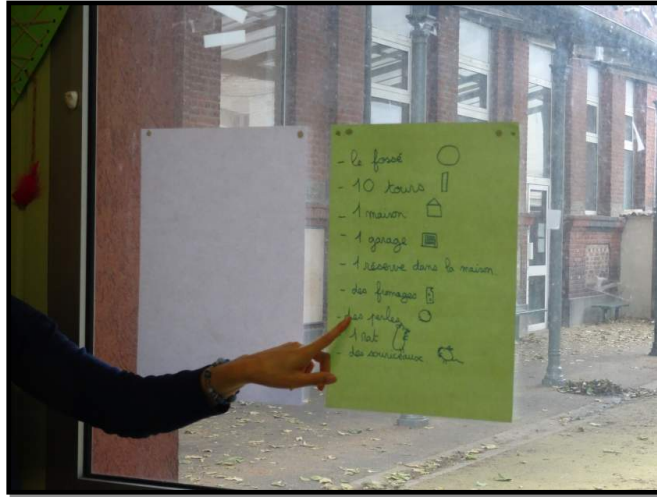 - le fossé
- 10 tours
- 1 maison
- 1 garage
- 1 réserve dans la maison
- des fromages
- des perles
- 1 rat
- des souriceaux